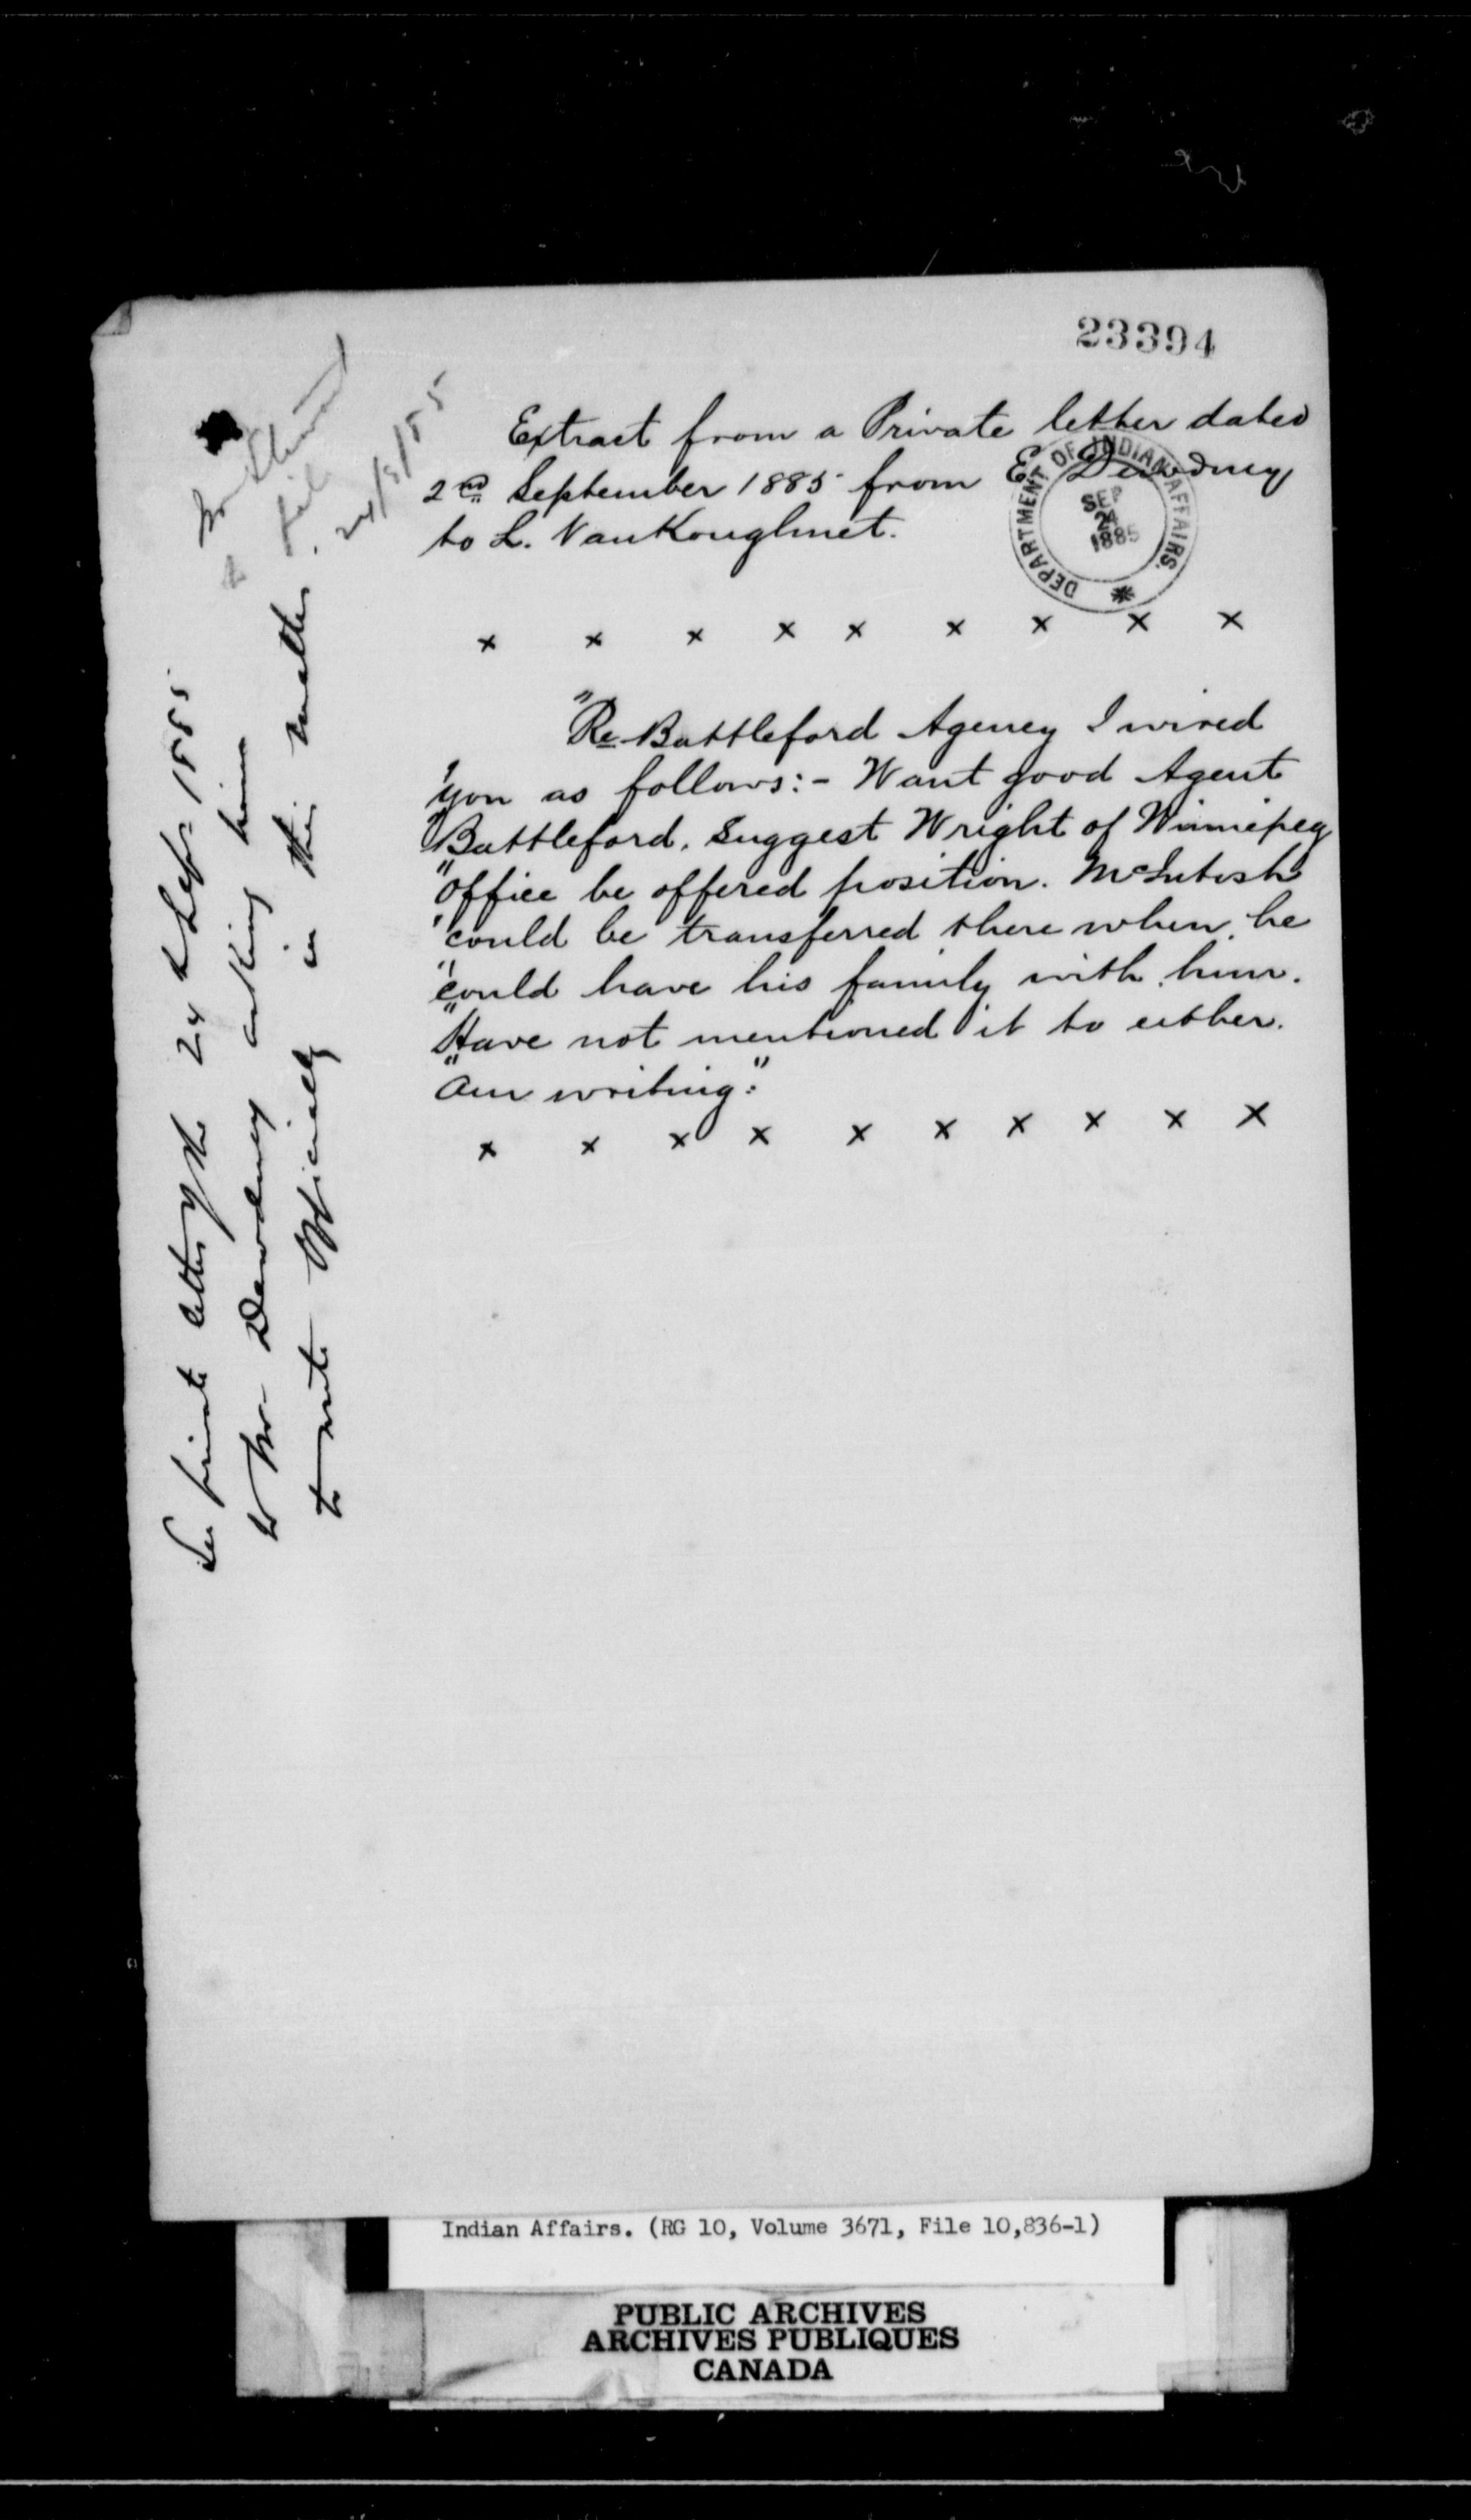 23394
Extract from a Private letter dated
2nd September 1885 from E. Dewdney
to L. VanKoughnet.
DEPARTMENT OF INDIAN AFFAIRS.
SEP
24
1885
x x x x x x x x x
"Re Battleford Agency I wired
"you as follows:- Want good Agent
"Battleford, Suggest Wright of Winnipeg
"office be offered position. McIntosh
"could be transferred there when he
"could have his family with him.
"Have not mentioned it to either.
"Am writing."
x x x x x x x x x x
Mr
file
24/9/85
See private letter of the 24th Sept 1885
to Mr Dewdney asking him
to write Officially in this matter.
Indian Affairs. (RG 10, Volume 3671, File 10,836-1)
PUBLIC ARCHIVES
ARCHIVES PUBLIQUES
CANADA